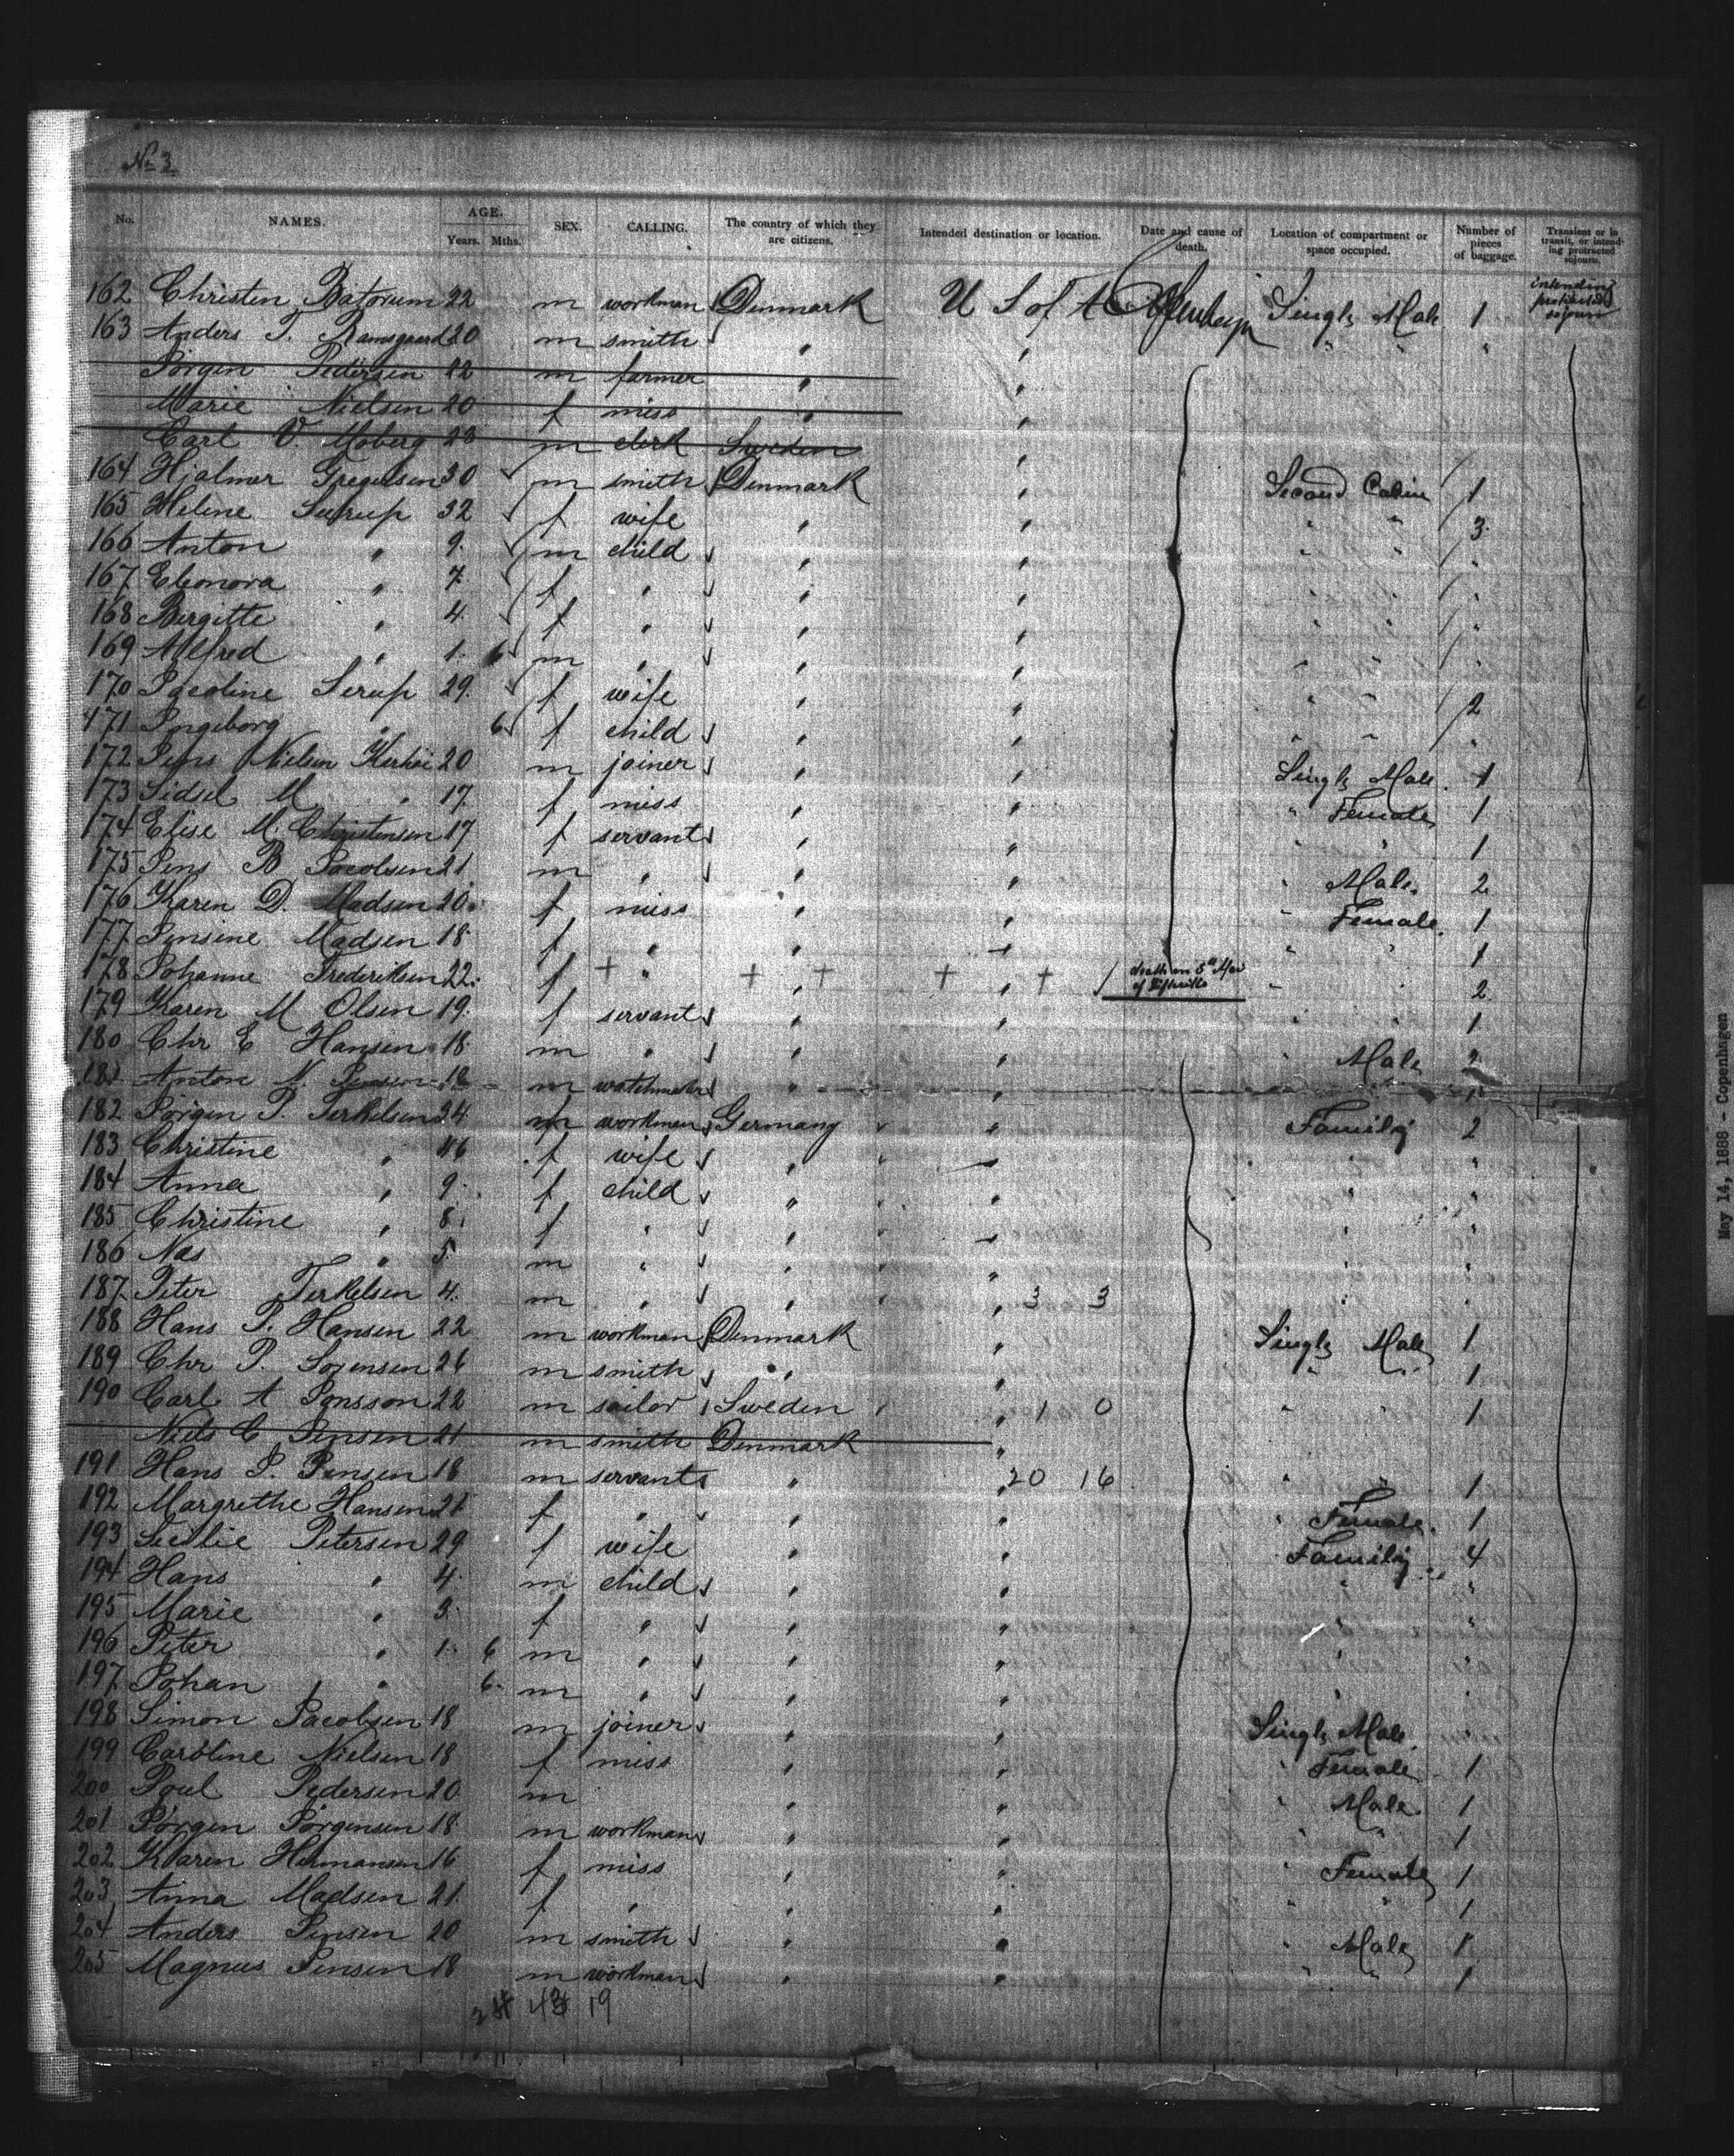 No 3.
No. NAMES. AGE. Years. Mths. SEX. CALLING. The country of which they are citizens. Intended destination or location. Date and cause of death. Location of compartment or space occupied. Number of pieces of baggage. Transient or in transit, or intending protracted sojourn.
162 Christen 22 m workman Denmark U S of A Single Male 1 intending protracted sojourn
163 Anders T. Ramsgaard 20 m smith " " " " "
Jörgen Pedersen 22 m farmer " "
Marie Nielsen 20 f miss " "
Carl V. Moberg 23 m clerk Sweden "
164 Hjalmer Gregersen 30 m smith Denmark " Second Cabin 1
165 Helene 32 f wife " " " " 3
166 Anton " 9 m child " " " " "
167 Eleonora " 7 f " " " " " "
168 Birgitte " 4 f " " " " " "
169 Alfred " 1 6 m " " " " " "
170 Jacoline Serup 29 f wife " " " " 2
171 Ingeborg " 6 f child " " " " "
172 Jens Nielsen 20 m joiner " " Single Male 1
173 Sidsel M " 17 f miss " " " Female 1
174 Elise M. Christensen 17 f servant " " " " 1
175 Jens B Jacobsen 21 m " " " " Male 2
176 Karen D. Madsen 20 f miss " " " Female 1
177 Jensine Madsen 18 f " " " " " 1
178 Johanne Frederiksen 22 f " " " death on 5th May of " " 2
179 Karen M Olsen 19 f servant " " " " 1
180 Chr E Hansen 18 m " " " " Male 2
181 Anton N. Jensen 18 m watchmaker " " 1
182 Jörgen P. Terkelsen 34 m workman Germany " Family 2
183 Christine " 46 f wife " " " "
184 Anna " 9 f child " " " "
185 Christine " 8 f " " " " "
186 Nas " 5 m " " " " "
187 Peter Terkelsen 4 m " " " 3 3 " "
188 Hans P. Hansen 22 m workman Denmark " Single Male 1
189 Chr P. Sorensen 26 m smith " " " " 1
190 Carl A Jonsson 22 m sailor Sweden " 1 0 " " 1
Niels C Jensen 21 m smith Denmark "
191 Hans P. Jensen 18 m servant " " 20 16 " " 1
192 Margrethe Hansen 21 f " " " " Female 1
193 Secilie Petersen 29 f wife " " Family 4
194 Hans " 4 m child " " " "
195 Marie " 3 f " " " " "
196 Peter " 1 6 m " " " " "
197 Johan " 6 m " " " " "
198 Simon Jacobsen 18 m joiner " " Single Male "
199 Caroline Nielsen 18 f miss " " " Female 1
200 Poul Pedersen 20 m " " " Male 1
201 Jörgen Jörgensen 18 m workman " " " " 1
202 Karen Hermansen 16 f miss " " " Female 1
203 Anna Madsen 21 f " " " " " 1
204 Anders Jensen 20 m smith " " " Male 1
205 Magnus Jensen 18 m workman " " " " 1
19
May 14, 1888 - Copenhagen